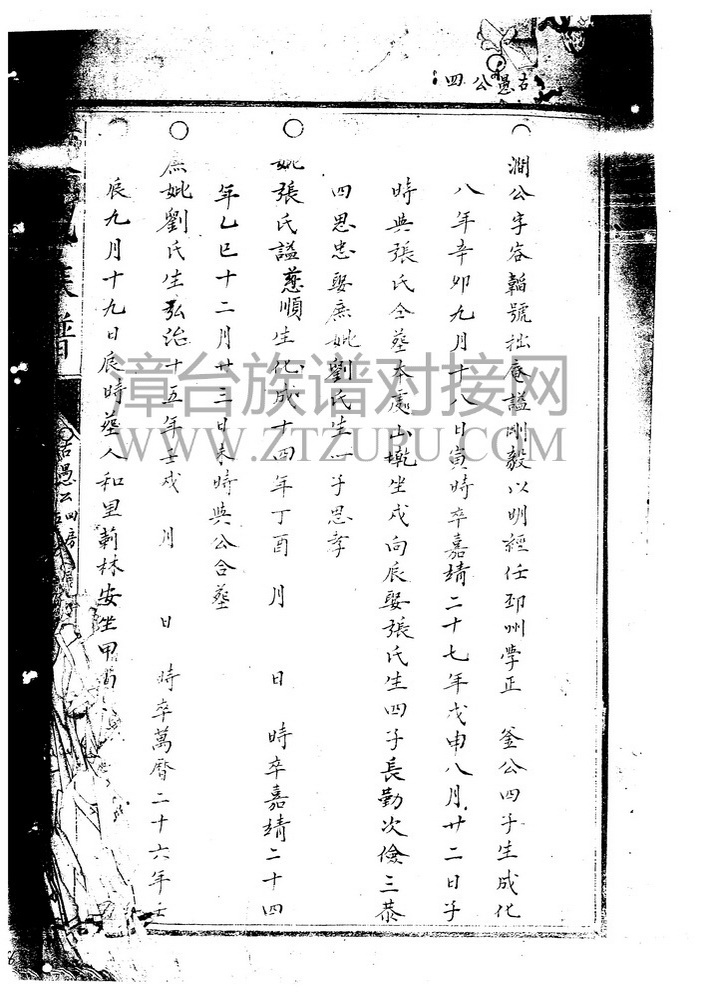 古愚公四
澗公字容韜號拙庵謚剛毅以明經任邳州學正 釜公四子生成化
八年辛卯九月十八日寅時卒嘉靖二十七年戊申八月廿二日子
時與張氏仝塟本處山墘坐戍向辰娶張氏生四子長勤次儉三恭
四思忠娶庶妣劉氏生一子思孝
妣張氏謚慈順生化成十四年丁酉 月 日 時卒嘉靖二十四
年乙巳十二月廿三日未時與公合塟
庶妣劉氏生弘治十五年壬戍 月 日 時卒萬曆二十六年壬
辰九月十九日辰時塟人和里莿林安坐甲
族譜
古愚公四房
漳台族谱对接网
WWW.ZTZUPU.COM